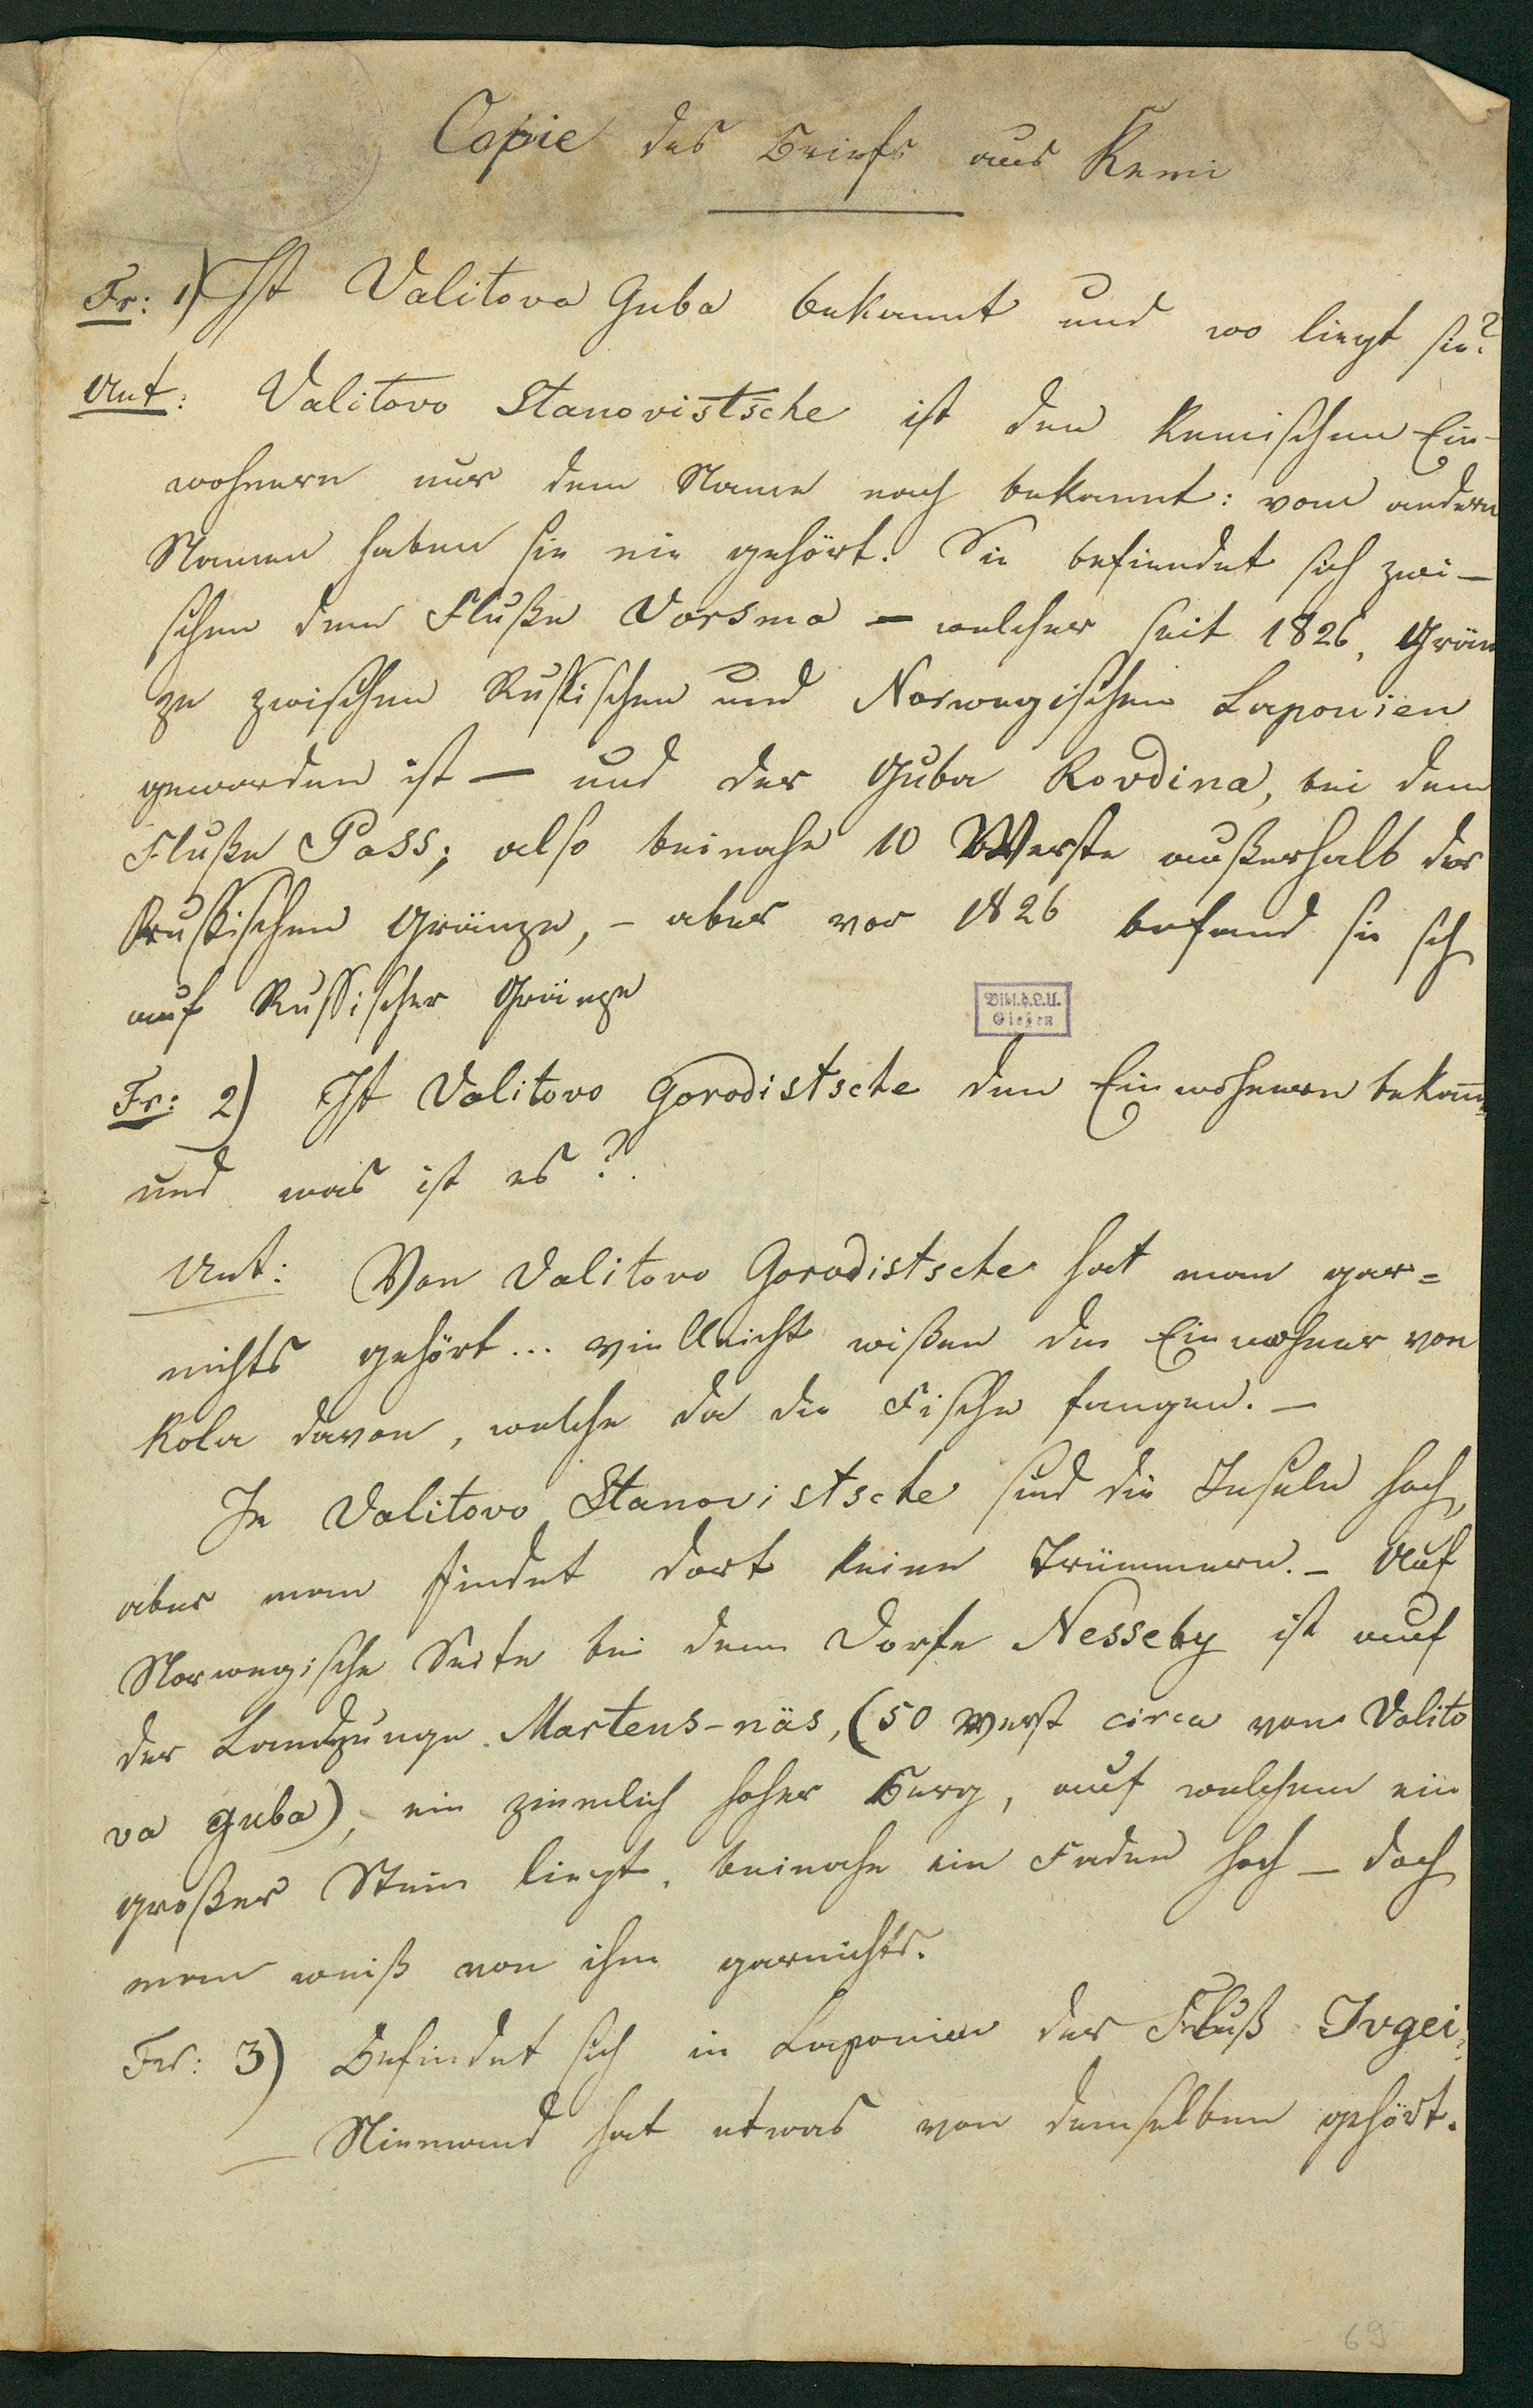 Copie des Briefs aus Kemi
Fr: 1) Ist Valitova Guba bekannt und wo liegt sie?
Ant: Valitovo Stanovistsche ist den Kemischen Ein-
wohnern nur dem Name nach bekannt: vom andern
Namen haben sie nie gehört. Sie befiendet sich zwi-
schen dem Fluße Vorsma - welcher seit 1826, Grän
ze zwischen Russischen und Norwegischen Laponien
geworden ist - und der Guba Rovdina, bei dem
Fluße Pass; also beinahe 10 Werste außerhalb der
Russischen Gränze, - aber vor 1826 befand sie sich
auf Russischer Gränze
Bibl.d.L.U.
Gießen
Fr: 2) Ist Valitovo Gorodistsche den Einwohnern bekann
und was ist es?
Ant: Von Valitovo Gorodistsche hat man gar=
nichts gehört... vielleicht wißen die Einwohner von
Kola davon, welche da die Fische fangen. -
In Valitovo Stanovistsche sind die Inseln hoch,
aber man findet dort keine Trümmern. - Auf
Norwegische Seite bei dem Dorfe Nesseby ist auf
der Landzunge Martens-näs, (50 Werst circa von Valito
va guba), ein ziemlich hoher Berg, auf welchem ein
großer Stein liegt, beinahe ein Faden hoch - doch
man weiß von ihm garnichts.
Fr: 3) Befindet sich in Laponien der Fluß Ivgei?
- Niemand hat etwas von demselben gehört.
69